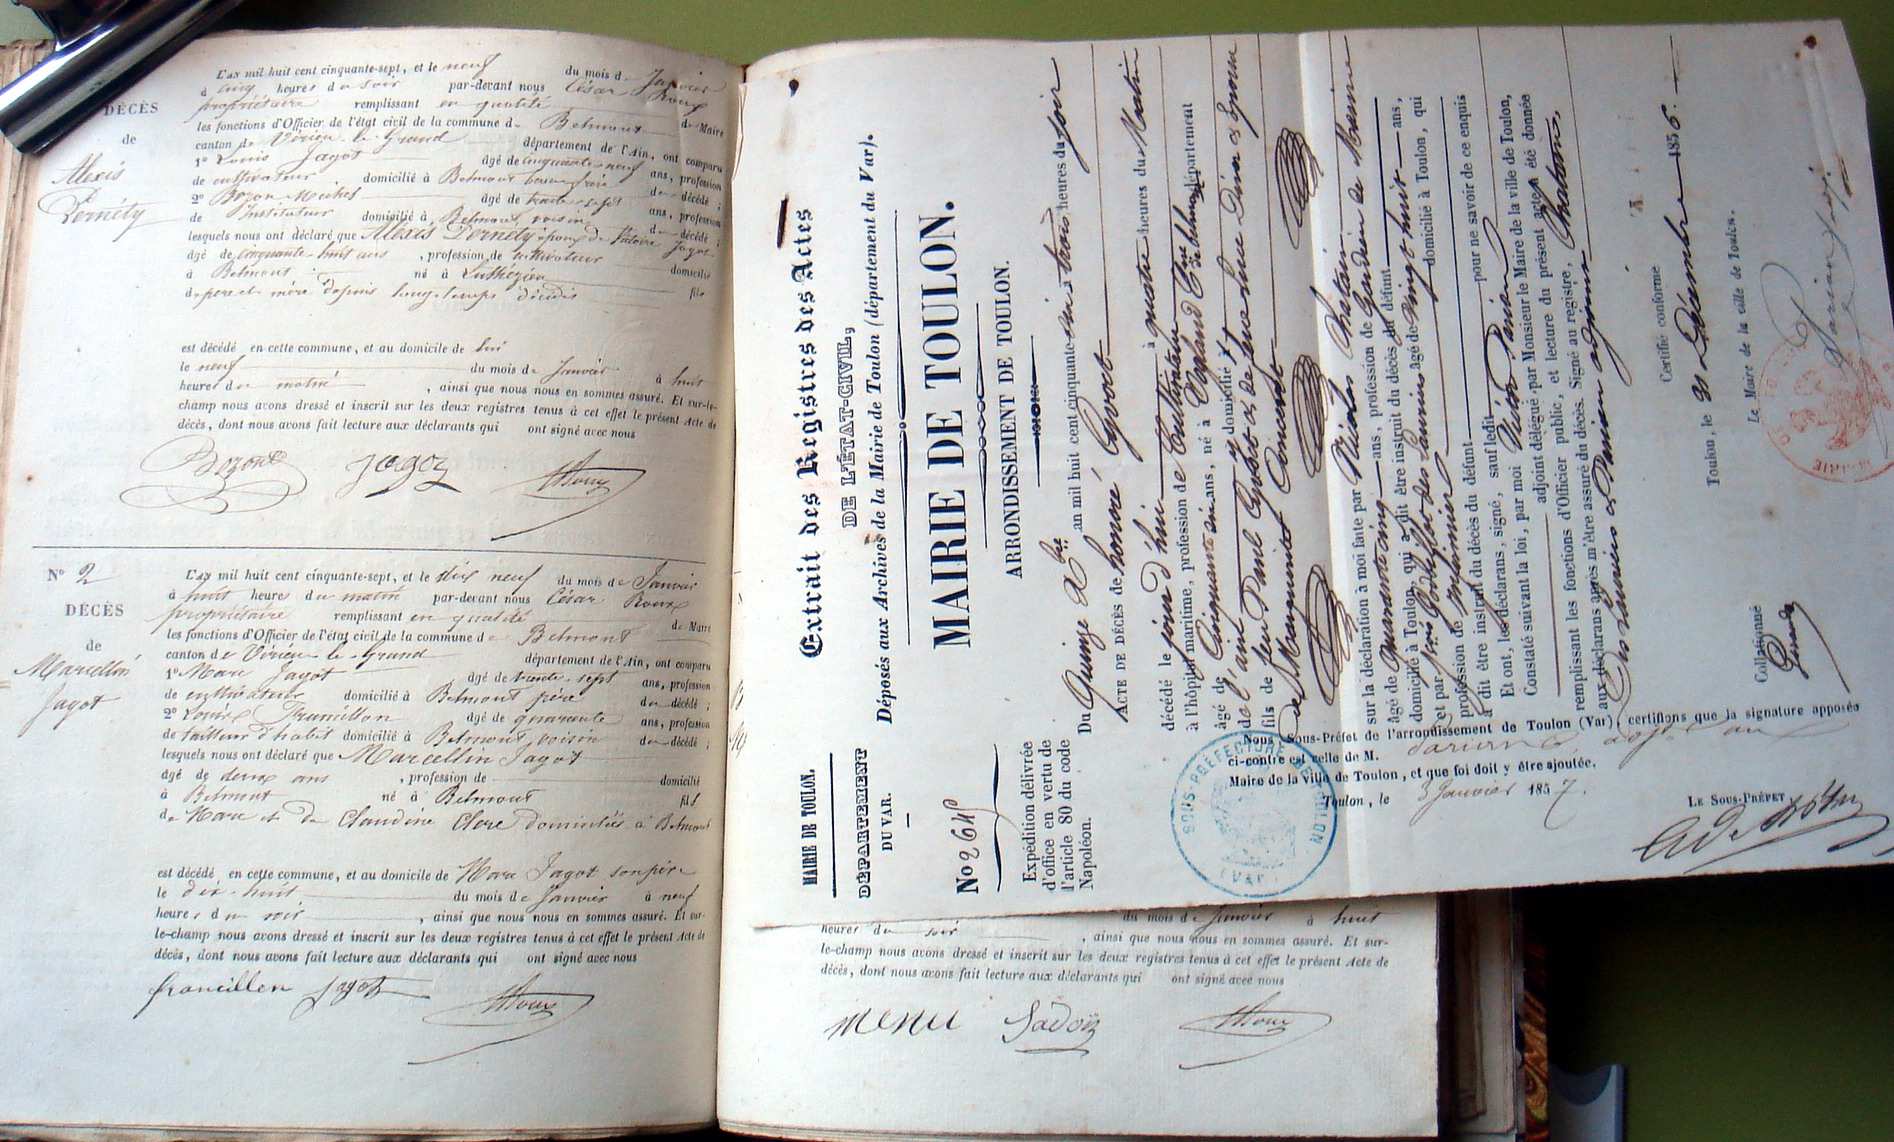 L'an mil huit cent cinquante-sept, et le neuf du mois de Janvier
à cinq heures du soir par-devant nous César Roux
propriétaire remplissant en qualité de Maire
les fonctions d'Officier de l'état civil de la commune de Belmont
canton de Virieu-le-Grand département de l'Ain, ont comparu
1° Louis Jagot âgé de cinquante-neuf ans, profession
de cultivateur domicilié à Belmont du décédé ;
2° Bozon Michel âgé de trente-sept ans, profession
de Instituteur domicilié à Belmont voisin du décédé ;
lesquels nous ont déclaré que Alexis Pernéty époux de Jagot
âgé de cinquante huit ans , profession de cultivateur domicilié
à Belmont né à fils
de père et mère depuis longtemps décédés
est décédé en cette commune, et au domicile de lui
le neuf du mois de Janvier à huit
heures du matin , ainsi que nous nous en sommes assuré. Et sur-le-
champ nous avons dressé et inscrit sur les deux registres tenus à cet effet le présent Acte de
décès, dont nous avons fait lecture aux déclarants qui ont signé avec nous
Jagot Roux
DÉCÈS
de
Alexis
Pernéty
N° 2
DÉCÈS
de
Marcellin
Jagot
L'an mil huit cent cinquante-sept, et le dix neuf du mois de Janvier
à huit heures du matin par-devant nous César Roux
propriétaire remplissant en qualité de Maire
les fonctions d'Officier de l'état civil de la commune de Belmont
canton de Virieu-le-Grand département de l'Ain, ont comparu
1° Marc Jagot âgé de trente-sept ans, profession
de cultivateur domicilié à Belmont père du décédé ;
2° Louis Francillon âgé de quarante ans, profession
de tailleur d'habit domicilié à Belmont voisin du décédé ;
lesquels nous ont déclaré que Marcellin Jagot
âgé de deux ans , profession de domicilié
à Belmont né à Belmont fils
de Marc et de Claudine Clerc domiciliés à Belmont
est décédé en cette commune, et au domicile de Marc Jagot son père
le dix-huit du mois de Janvier à neuf
heures du soir , ainsi que nous nous en sommes assuré. Et sur-
le-champ nous avons dressé et inscrit sur les deux registres tenus à cet effet le présent Acte de
décès, dont nous avons fait lecture aux déclarants qui ont signé avec nous
francillon jagot Roux
MAIRIE DE TOULON.
DÉPARTEMENT
DU VAR.
N° 2645
Expédition délivrée
d'office en vertu de
l'article 80 du code
Napoléon.
Extrait des Registres des Actes
DE L'ÉTAT-CIVIL,
Déposés aux Archives de la Mairie de Toulon (département du Var).
MAIRIE DE TOULON.
ARRONDISSEMENT DE TOULON.
Du Quinze Xbre an mil huit cent cinquante-six à trois heures du soir
ACTE DE DÉCÈS de honoré Gyvot
décédé le jour d'hui à quatre heures du Matin
à l'hôpital maritime, profession de Cultivateur
âgé de Cinquante six ans, né à département
de l'ain y domicilié
fils de feu
de Marguerite
sur la déclaration à moi faite par Nicolas Chatain
âgé de quarante cinq ans, profession de Gardien de Marine
domicilié à Toulon, qui a dit être instruit du décès du défunt
et par âgé de vingt huit ans,
profession de infirmier domicilié à Toulon, qui
a dit être instruit du décès du défunt
Et ont, les déclarans, signé, sauf ledit pour ne savoir de ce enquis
Constaté suivant la loi, par moi
adjoint délégué par Monsieur le Maire de la ville de Toulon,
remplissant les fonctions d'Officier public, et lecture du présent acte a été donnée
aux déclarans après m'être assuré du décès. Signé au registre, Chatain,
adjoint
Certifié conforme
Toulon, le 31 Décembre 1856.
Le Maire de la ville de Toulon.
Collationné
MAIRIE
Nous Sous-Préfet de l'arrondissement de Toulon (Var), certifions que la signature apposée
ci-contre est celle de M.
Maire de la ville de Toulon, et que foi doit y être ajoutée.
Toulon, le 3 Janvier 1857.
LE SOUS-PRÉFET
SOUS-PRÉFECTURE DE TOULON
(VAR)
du mois de Janvier à huit
heures du soir , ainsi que nous nous en sommes assuré. Et sur-
le-champ nous avons dressé et inscrit sur les deux registres tenus à cet effet le présent Acte de
décès, dont nous avons fait lecture aux déclarants qui ont signé avec nous
menu Roux